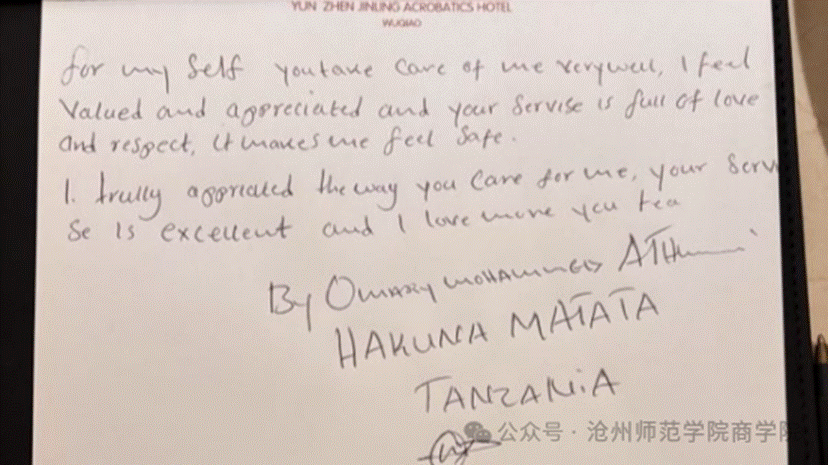 YUN ZHEN JINLING ACROBATICS HOTEL
WUQIAO
for my self you take care of me very well, I feel
Valued and appreciated and your servise is full of love
and respect, it makes me feel safe.
I. trully appriated the way you care for me, your servi
se is excellent and I love more you tea
By OMARY MOHAMMED
HAKUNA MATATA
TANZANiA
公众号 · 沧州师范学院商学院